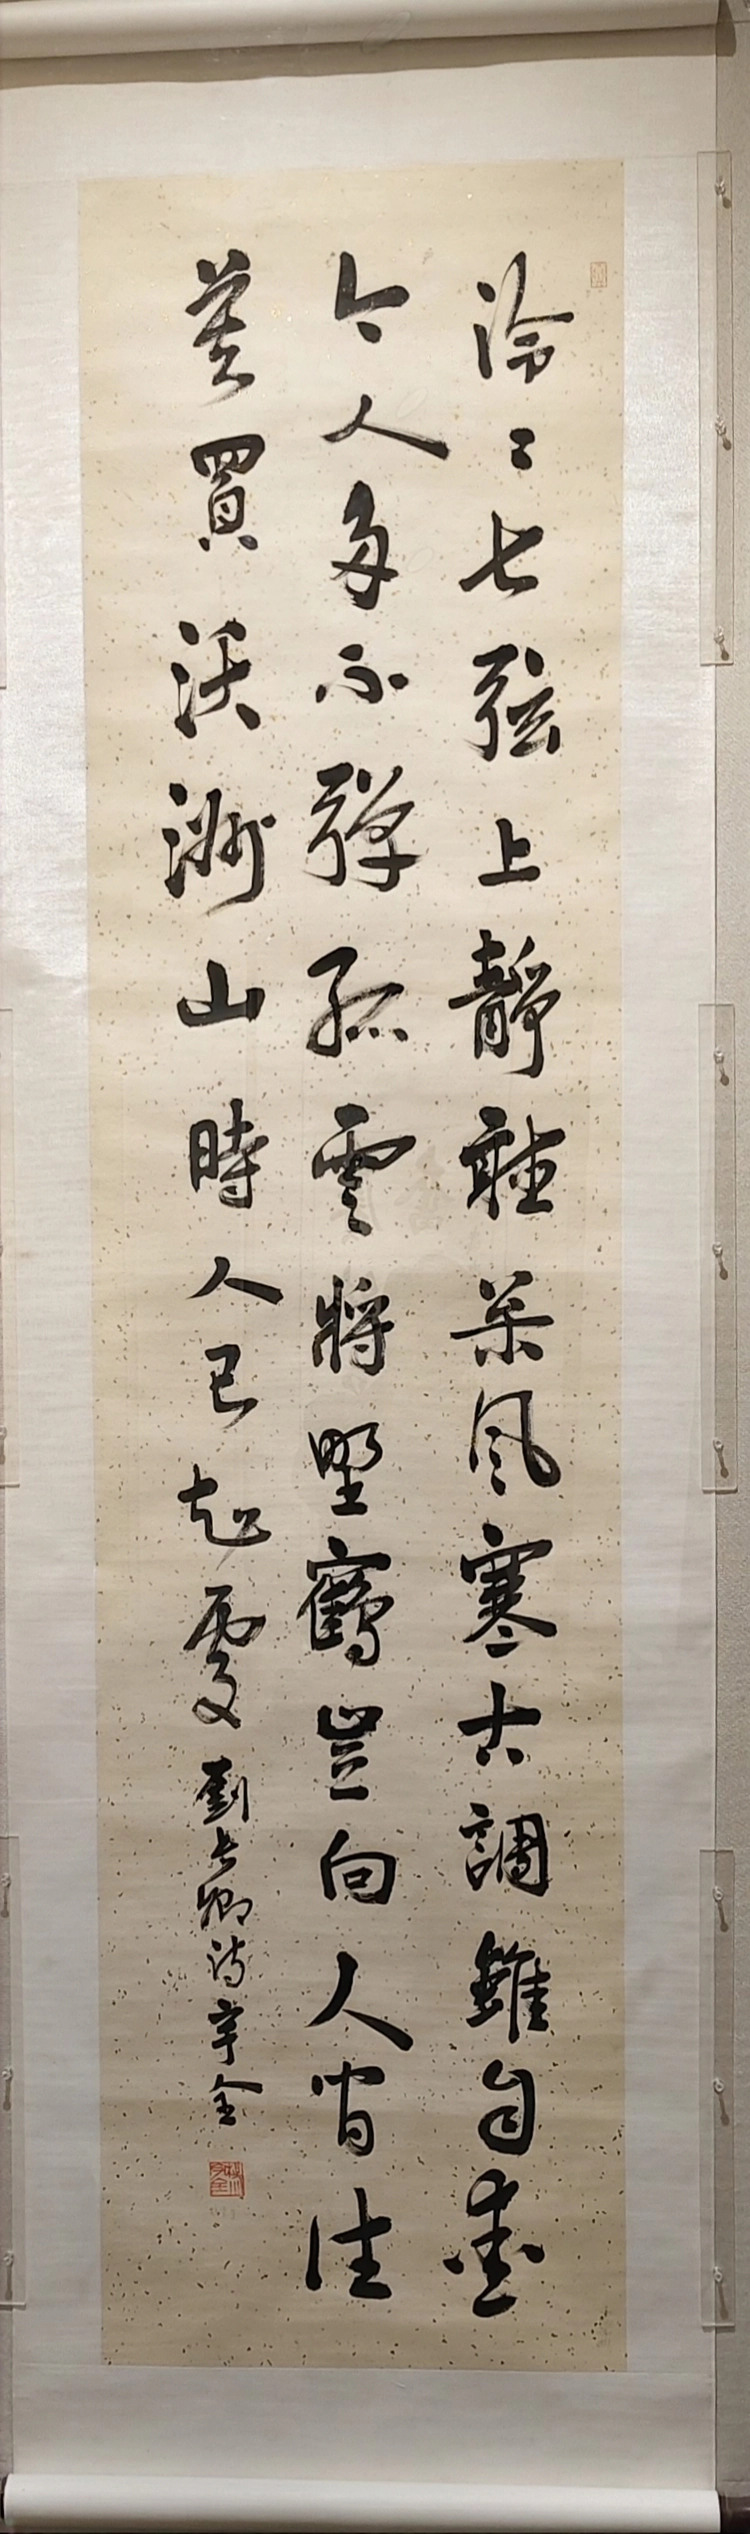 泠〻七弦上靜聽松風寒古調雖自愛
今人多不彈孤雲將野鶴豈向人間住
莫買沃洲山時人已知處劉長卿詩宇全